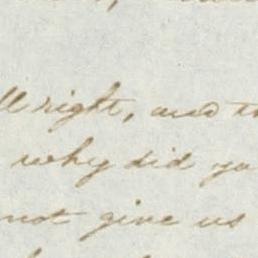 ll right, and t
why did yo
not give us